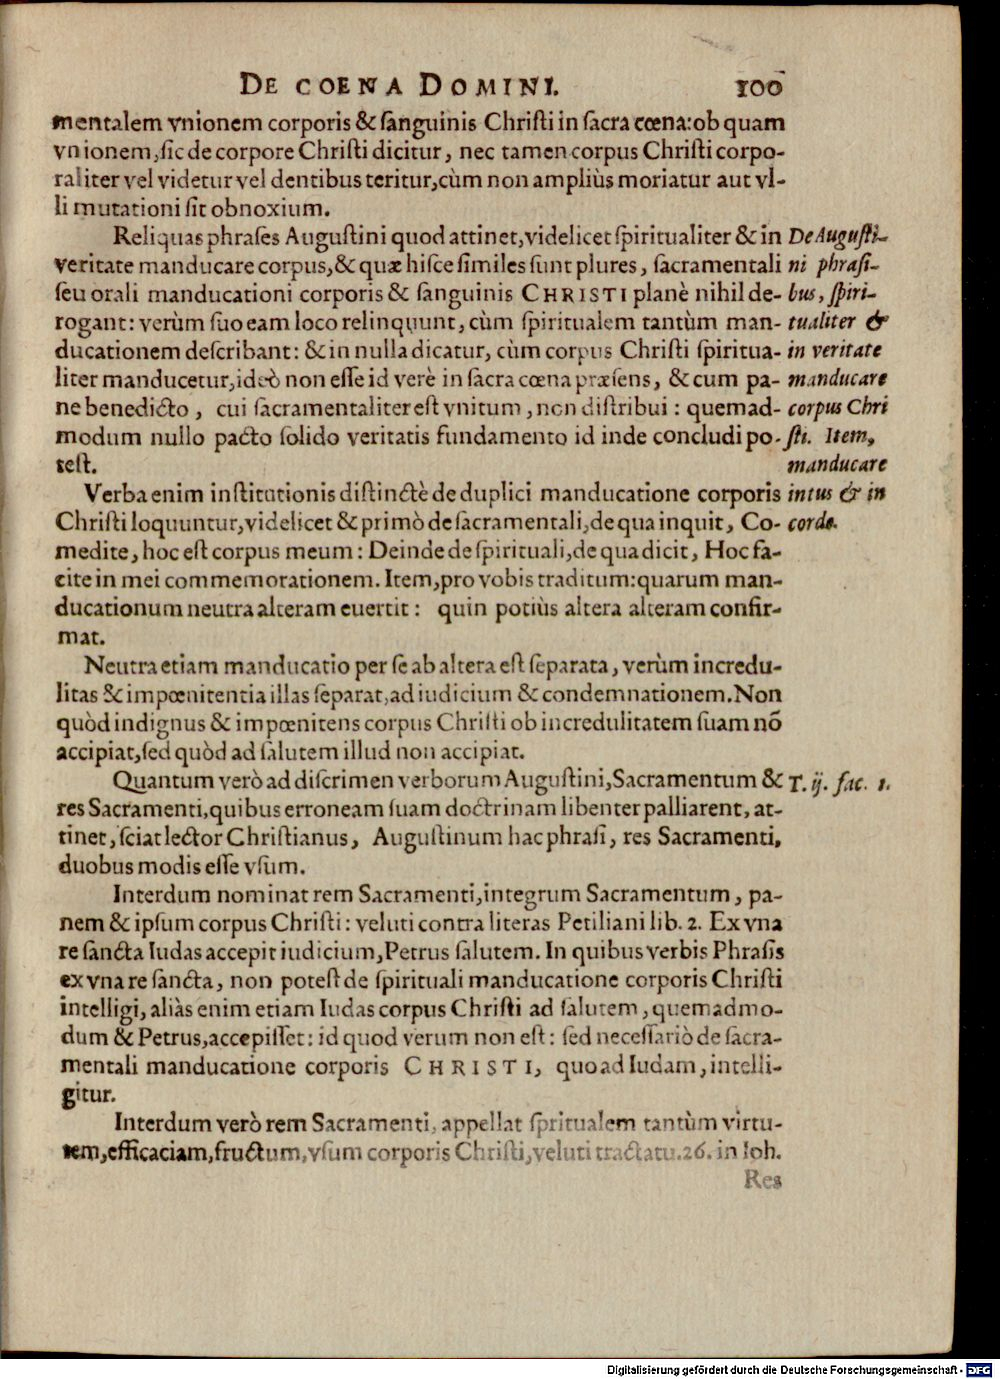 DE COENA DOMINI. 100
mentalem vnionem corporis & sanguinis Christi in sacra cœna: ob quam
vnionem, sic de corpore Christi dicitur, nec tamen corpus Christi corpo-
raliter vel videtur vel dentibus teritur, cùm non ampliùs moriatur aut vl-
li mutationi sit obnoxium.
Reliquas phrases Augustini quod attinet, videlicet spiritualiter & in
veritate manducare corpus, & quæ hisce similes sunt plures, sacramentali
seu orali manducationi corporis & sanguinis CHRISTI planè nihil de-
rogant: verùm suo eam loco relinquunt, cùm spiritualem tantùm man-
ducationem describant: & in nulla dicatur, cùm corpus Christi spiritua-
liter manducetur, ideò non esse id verè in sacra cœna præsens, & cum pa-
ne benedicto, cui sacramentaliter est vnitum, non distribui: quemad-
modum nullo pacto solido veritatis fundamento id inde concludi po-
test.
De Augusti-
ni phrasi-
bus, spiri-
tualiter &
in veritate
manducare
corpus Chri
sti. Item,
manducare
intus & in
corde.
Verba enim institutionis distinctè de duplici manducatione corporis
Christi loquuntur, videlicet & primò de sacramentali, de qua inquit, Co-
medite, hoc est corpus meum: Deinde de spirituali, de qua dicit, Hoc fa-
cite in mei commemorationem. Item, pro vobis traditum: quarum man-
ducationum neutra alteram euertit: quin potiùs altera alteram confir-
mat.
Neutra etiam manducatio per se ab altera est separata, verùm incredu-
litas & impœnitentia illas separat, ad iudicium & condemnationem. Non
quòd indignus & impœnitens corpus Christi ob incredulitatem suam nō
accipiat, sed quòd ad salutem illud non accipiat.
Quantum verò ad discrimen verborum Augustini, Sacramentum &
res Sacramenti, quibus erroneam suam doctrinam libenter palliarent, at-
tinet, sciat lector Christianus, Augustinum hac phrasi, res Sacramenti,
duobus modis esse vsum.
T. ij. fac. 1.
Interdum nominat rem Sacramenti, integrum Sacramentum, pa-
nem & ipsum corpus Christi: veluti contra literas Petiliani lib. 2. Ex vna
re sancta Iudas accepit iudicium, Petrus salutem. In quibus verbis Phrasis
ex vna re sancta, non potest de spirituali manducatione corporis Christi
intelligi, aliàs enim etiam Iudas corpus Christi ad salutem, quemadmo-
dum & Petrus, accepisset: id quod verum non est: sed necessariò de sacra-
mentali manducatione corporis CHRISTI, quoad Iudam, intelli-
gitur.
Interdum verò rem Sacramenti, appellat spritualem tantùm virtu-
tem, efficaciam, fructum, vsum corporis Christi, veluti tractatu. 26. in Ioh.
Res
Digitalisierung gefördert durch die Deutsche Forschungsgemeinschaft - DFG